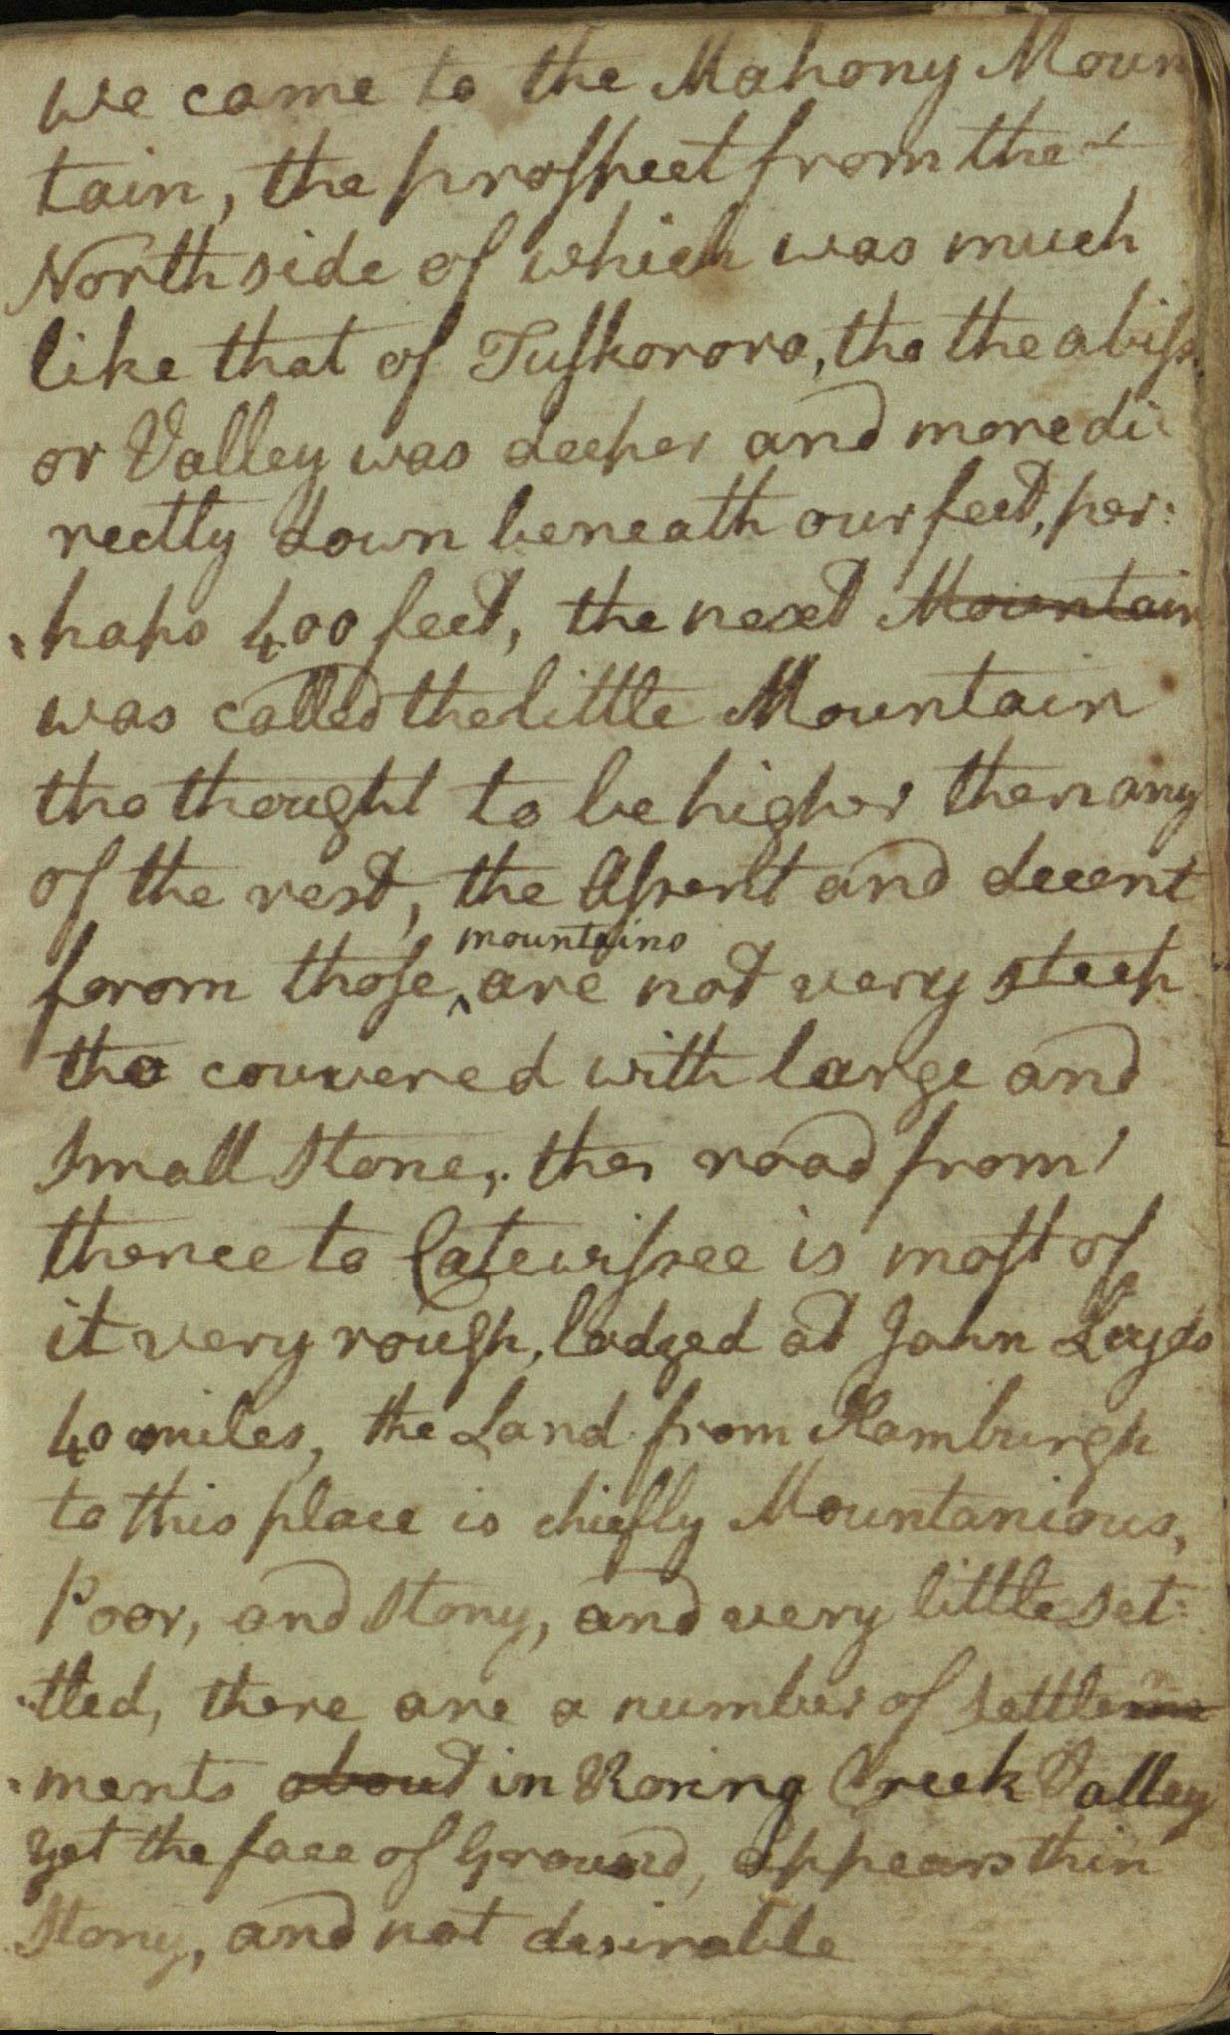 we came to the Mahony Moun
tain, the prospect from the
North side of which was much
like that of Tuskorora, tho the abiss
or Valley was deeper and more di
rectly down beneath our feet, per:
haps 400 feet, the next Mountain
was called the little Mountain
tho thought to be higher then any
of the rest, the Assent and decent
from those mountains are not very steep
tho couvered with large and
small stone, the road from
thence to Catewissee is most of
it very rough, lodged at John
40 miles, the Land from Hamburgh
to this place is chiefly Mountanious,
Poor, and stony, and very little set:
tled, there are a number of settleme
:ments about in Roring Creek Valley
yet the face of Ground, appears thin
stony, and not desirable